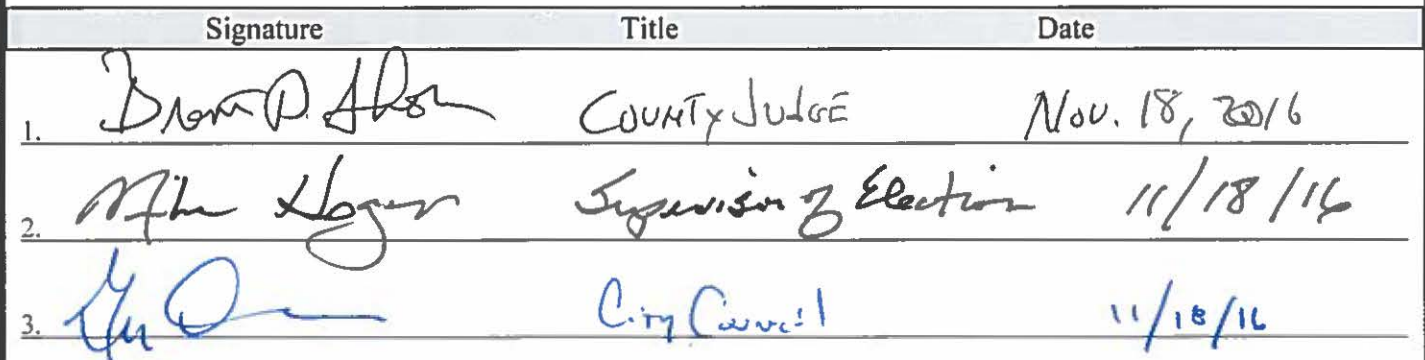 Signature Title Date
1. D. COUNTY JUDGE Nov. 18, 2016
2. Mike Hogan Supervisor of Election 11/18/16
3. City Council 11/18/16